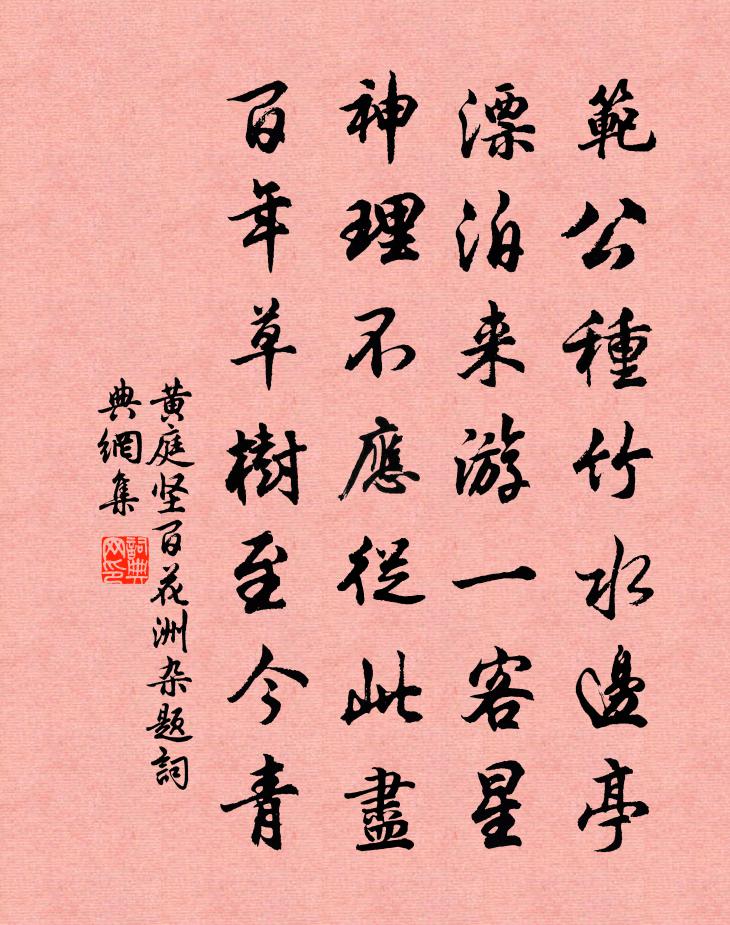 範公種竹水邊亭
漂泊来游一客星
神理不應從此盡
百年草樹至今青
黄庭坚百花洲杂题詞
典網集
詞典
网印